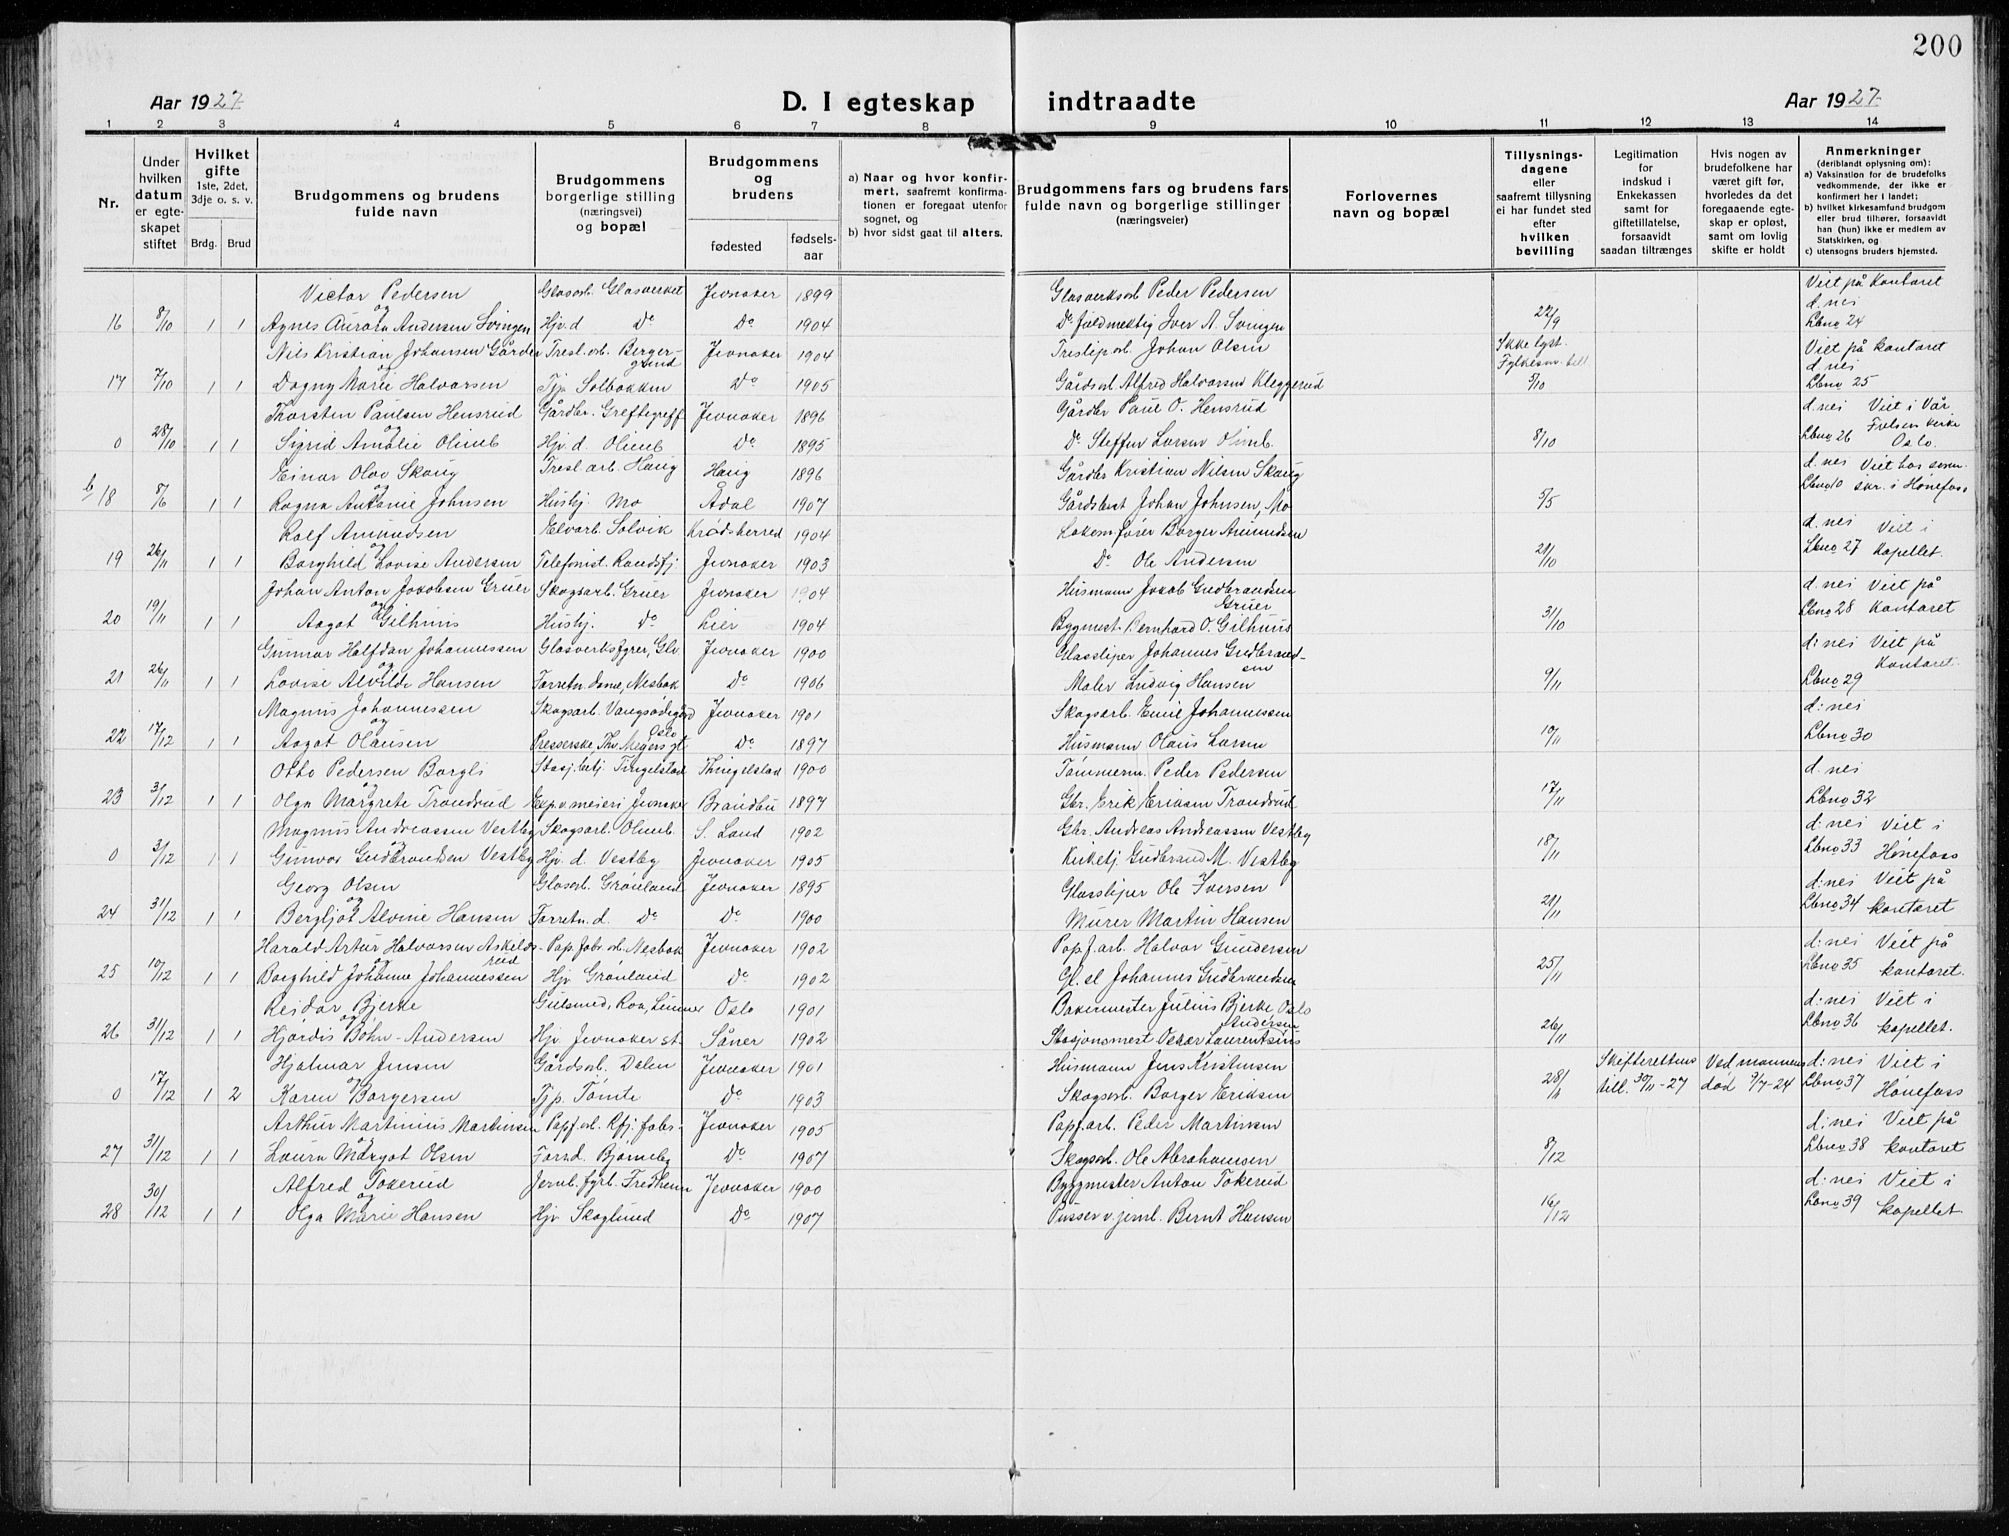 200
Aar 1927.
D. I egteskap indtraadte
Aar 1927.
1 2 3 4 5 6 7 8 9 10 11 12 13 14
Nr.
Under hvilken datum er egteskapet stiftet
Hvilket gifte 1ste, 2det, 3dje o. s. v.
Brdg. Brud
Brudgommens og brudens fulde navn
Brudgommens borgerlige stilling (næringsvei) og bopæl
Brudgommens og brudens
fødested
fødselsaar
a) Naar og hvor konfirmert, saafremt konfirmationen er foregaat utenfor sognet, og
b) hvor sidst gaat til alters.
Brudgommens fars og brudens fars fulde navn og borgerlige stillinger (næringsveier)
Forlovernes navn og bopæl
Tillysningsdagene eller saafremt tillysning ei har fundet sted efter hvilken bevilling
Legitimation for indskud i Enkekassen samt for giftetillatelse, forsaavidt saadan tiltrænges
Hvis nogen av brudefolkene har været gift før, hvorledes da det foregaaende egteskap er opløst, samt om lovlig skifte er holdt
Anmerkninger (deriblandt oplysning om):
a) Vaksination for de brudefolks vedkommende, der ikke er konfirmert her i landet;
b) hvilket kirkesamfund brudgom eller brud tilhører, forsaavidt han (hun) ikke er medlem av Statskirken, og
c) utensogns bruders hjemsted.
Victor Pedersen Glasarb. Glasverket Jevnaker 1899 Glasverksarb Peder Pedersen Viet på Kontoret
og d. nei
16 8/10 1 1 Agnes Aurora Andersen Svingen Hjv. d Do Do 1904 Do fuldmektig Iver A. Svingen 22/9 Lbno 24
Nils Kristian Johansen Gården Tresl. arb. Bergersund Jevnaker 1904 Treslip arb. Johan Olsen Ikke lyst. Fylkesm. till. Viet på kontoret
og d. nei
17 7/10 1 1 Dagny Marie Halvorsen Tjp Solbakken Do 1905 Gårdsarb Alfred Halvorsen Kleggerud 5/10 Lbno 25
Thorsten Paulsen Hensrud Gårdbr. Greftegreff Jevnaker 1896 Gårdbr Paul O. Hensrud d. nei Viet i Vår
og Frelsers kirke
0 28/10 1 1 Sigrid Amalie Olimb Hjv. d. Olimb Do 1895 Do Steffen Larsen Olimb. 8/10 Lbno 26 Oslo.
Einar Olav Skaug Tresl. arb. Haug Haug 1896 Gårdbr Kristian Nilsen Skaug d. nei Viet hos soren-
og
b/18 8/6 1 1 Ragna Antonie Johnsen Hushj. Mo Ådal 1907 Gårdsbest Johan Johnsen, Mo 5/5 Lbno 10 skr. i Hønefoss
Rolf Amundsen Elvarb. Solvik Krødsherred 1904 Lokomfører Borger Amundsen d. nei Viet i
og
19 26/11 1 1 Borghild Lovise Andersen Telefonist. Randsfj Jevnaker 1903 Do Ole Andersen 21/10 Lbno 27 Kapellet.
Johan Anton Jakobsen Gruer Skogsarb. Gruer Jevnaker 1904 Husmann Jakob Gudbrandsen Gruer d: nei Viet på
og
20 19/11 1 1 Aagot Gilhuus Hushj. Do Lier 1904 Bygmest. Bernhard O. Gilhuus 31/10 Lbno 28 Kontoret
Gunnar Halfdan Johannessen Glasverksfyrer, Glv Jevnaker 1900 Glassliper Johannes Gudbrandsen d: nei Viet på
og Kontoret.
21 26/11 1 1 Lovise Alvilde Hansen Forretn. dame, Nesbak Do 1906 Maler Ludvig Hansen 9/11 Lbno 29
Magnus Johannessen Skogsarb. Vangsødegård Jevnaker 1901 Skogsarb. Emil Johannessen d: nei
og
22 17/12 1 1 Aagot Olausen Presserske, Thv Meyers gt Oslo Do 1897 Husmann Olaus Larsen 10/11 Lbno 30
Otto Pedersen Borgli Stasj. betj. Tingelstad Thingelstad 1900 Tømmerm. Peder Pedersen d. nei
og
23 31/12 1 1 Olga Margrete Trondrud Exp. v. meieri Jevnaker Brandbu 1897 Gbr. Erik Eriksen Trondrud 17/11 Lbno 32
Magnus Andreassen Vestby Skogsarb. Olimb. S. Land 1902 Gbr. Andreas Andreassen Vestby d: nei Viet i
og
0 3/12 1 1 Gunvor Gudbrandsen Vestby Hjv. d. Vestby Jevnaker 1905 Kirketj. Gudbrand M. Vestby 18/11 Lbno 33 Hønefoss
Georg Olsen Glasarb. Grønland Jevnaker 1895 Glassliper Ole Iversen d: nei Viet på
og
24 31/12 1 1 Bergljot Alvine Hansen Forretn. d. Do Do 1900 Murer Martin Hansen 21/11 Lbno 34 kontoret
Harald Artur Halvorsen Askelsrud Pap. fabr. arb. Nesbak Jevnaker 1902 Papf. arb. Halvor Gundersen d: nei Viet på
og
25 10/12 1 1 Borghild Johanne Johannessen Hjv Grønland Do 1902 Gl. sl Johannes Gudbrandsen 25/11 Lbno 35 kontoret.
Reidar Bjerke Gulsmed, Roa, Lunner Oslo 1901 Bakermester Julius Bjerke Oslo d: nei Viet i
og
26 31/12 1 1 Hjørdis Bohn-Andersen Hjv Jevnaker st. Såner 1902 Stasjonsmest Oskar Laurentsius Andersen 26/11 Lbno 36 kapellet.
Hjalmar Jensen Gårdsarb. Dalen Jevnaker 1901 Husmann Jens Kristensen Skifterettens Ved mannens d: nei Viet i
og
0 17/12 1 2 Karen Borgersen Tjp. Tømte Do 1903 Skogsarb. Borger Eriksen 28/11 till. 30/11-27 død 9/7-24 Lbno 37 Hønefoss
Arthur Martinius Martinsen Papf. arb. Rfj. fabr. Jevnaker 1905 Papf. arb. Peder Martinsen d: nei Viet på
og
27 31/12 1 1 Laura Margot Olsen Forrd. Bjørneby Do 1907 Skogsarb. Ole Abrahamsen 8/12 Lbno 38 kontoret
Alfred Tokerud Jernb. fyrb. Fredheim Jevnaker 1900 Byggmester Anton Tokerud d: nei Viet i
og
28 30/12 1 1 Olga Marie Hansen Hjv Skoglund Do 1907 Pusser v. jernb. Bernt Hansen 16/12 Lbno 39 kapellet